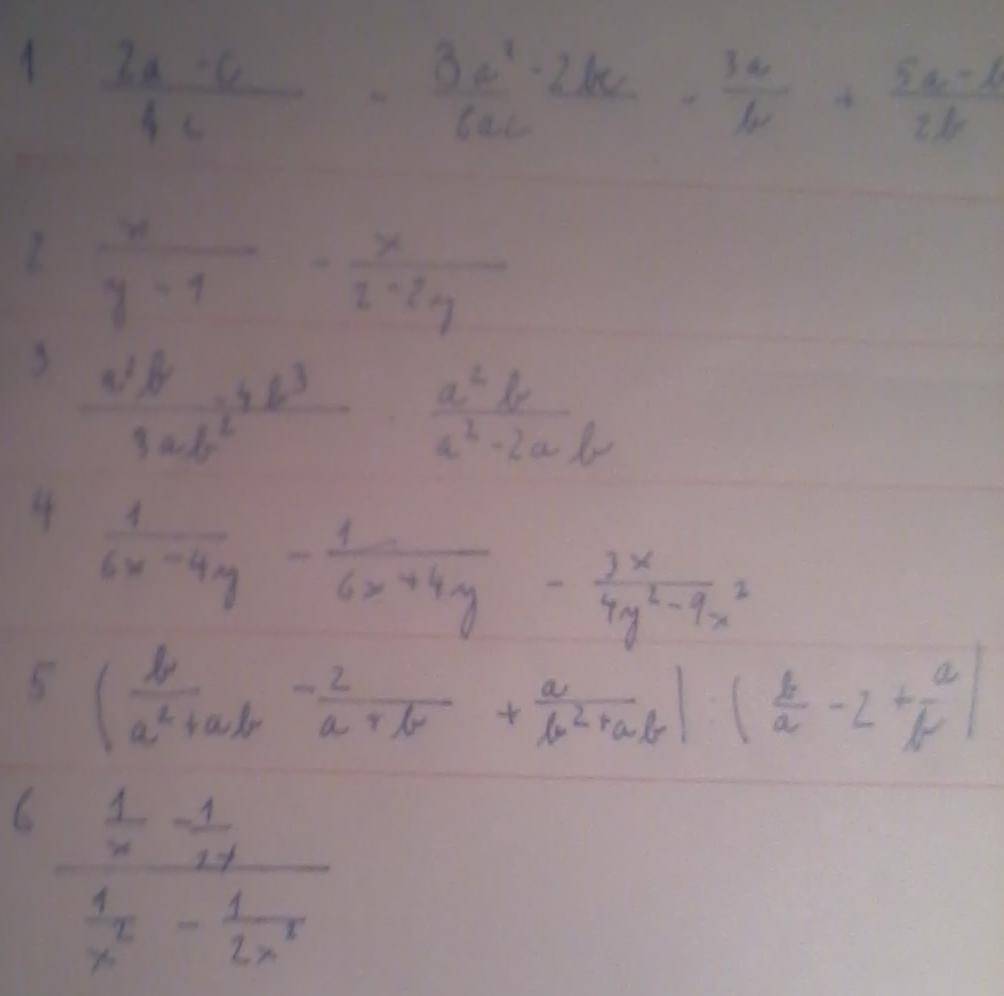 1 (2a - c)/(4c) - (3a² - 2bc)/(6ac) - 3a/b + (5a - b)/(2b)
2 x/(y - 1) - x/(2 - 2y)
3 (a²b - 4b³)/(3ab²) · (a²b)/(a² - 2ab)
4 1/(6x - 4y) - 1/(6x + 4y) - 3x/(4y² - 9x²)
5 (b/(a² + ab) - 2/(a + b) + a/(b² + ab)) : (b/a - 2 + a/b)
6 (1/x - 1/2x)/(1/x² - 1/2x²)